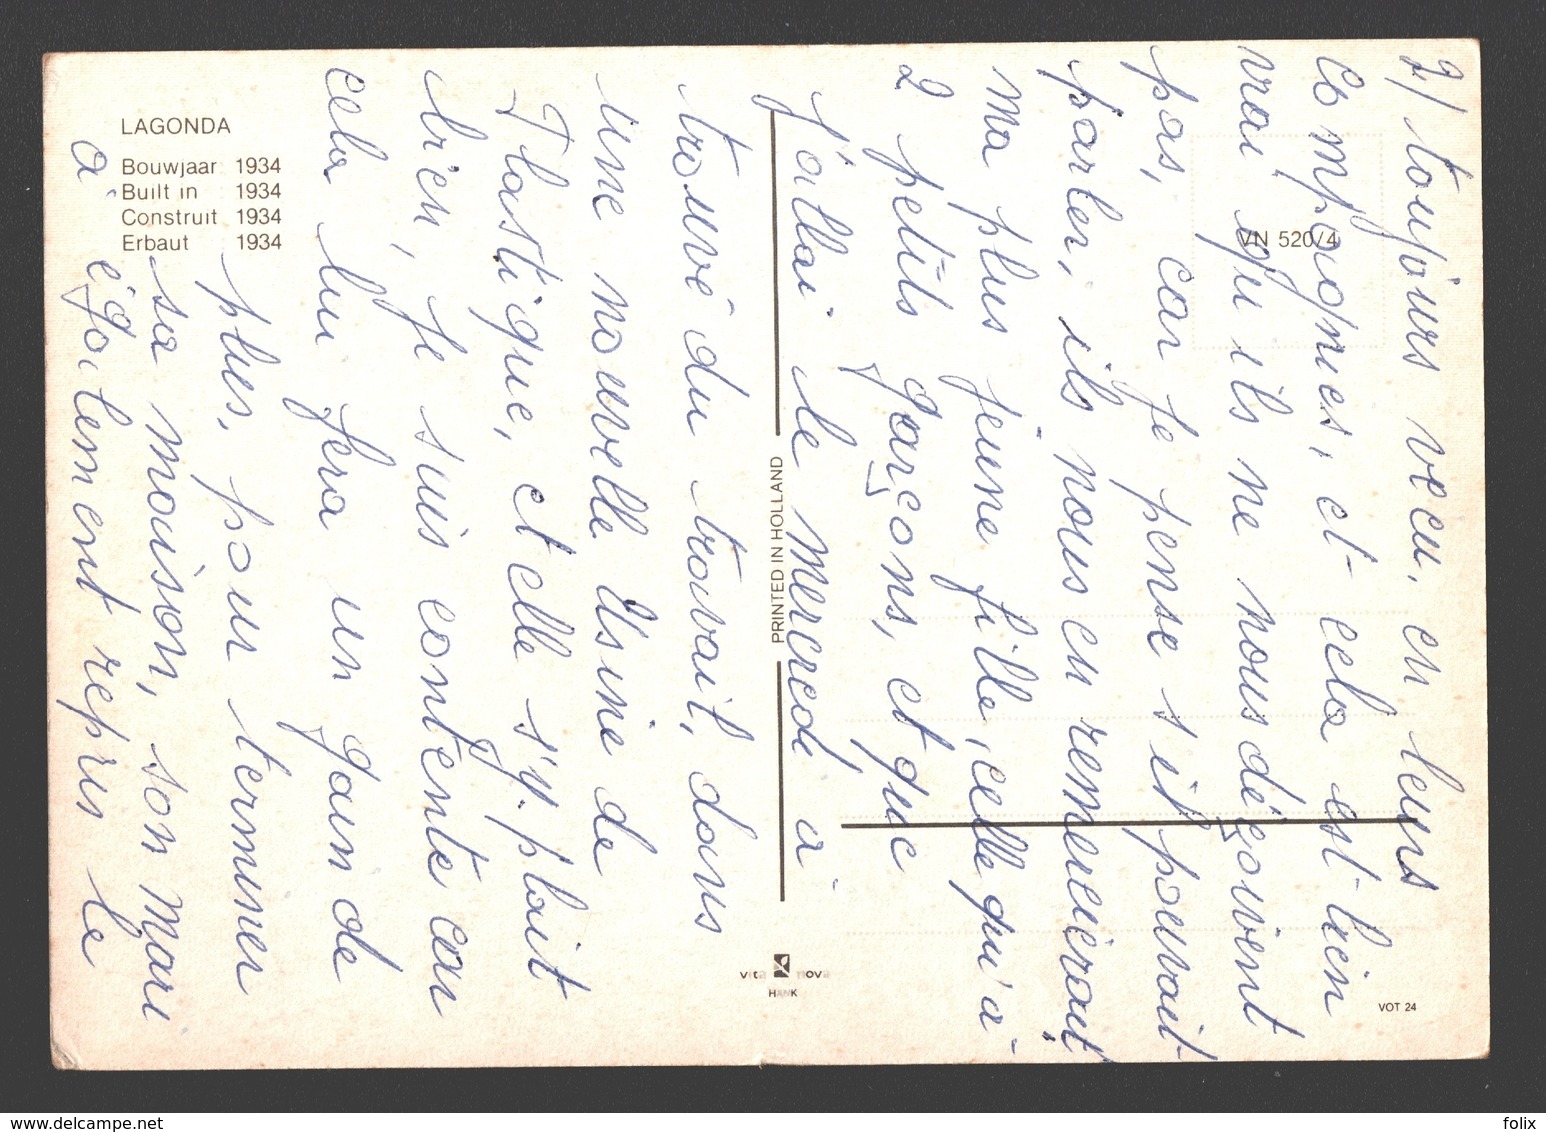 LAGONDA
Bouwjaar 1934
Built in 1934
Construit 1934
Erbaut 1934
VN 520/4
PRINTED IN HOLLAND
vita nova
HANK
VOT 24
2/ toujours vecu, en leurs
compagnies, et cela est bien
vrai qu'ils ne nous déçoivent
pas, car je pense s'il pouvait
parler, ils nous en remercierait
ma plus jeune fille, celle qui à
2 petits garçons, et que
j'allai le mercredi, à
trouvé du travail, dans
une nouvelle Usine de
Plastique, et elle s'y plait
bien, je suis contente car
cela lui fera un gain de
plus, pour terminer
sa maison, son Mari
à également repris le
www.delcampe.net
folix